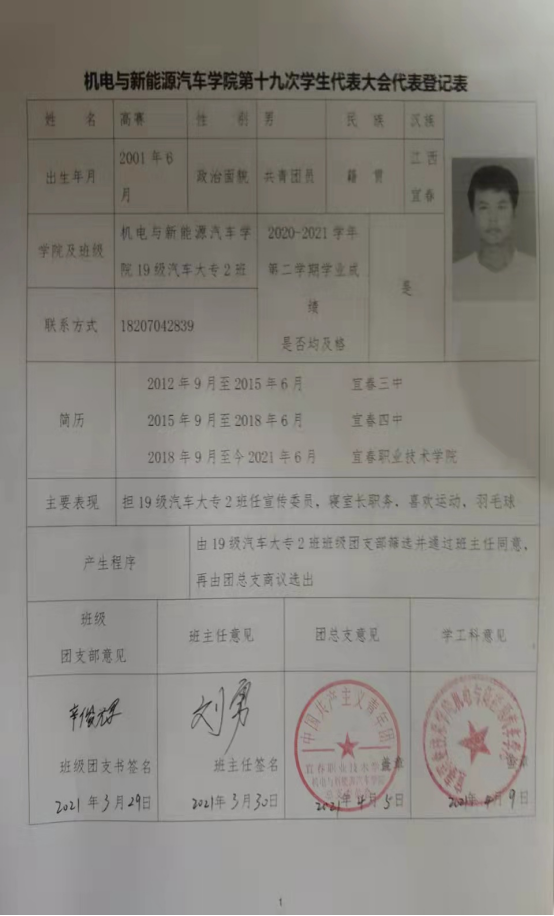 机电与新能源汽车学院第十九次学生代表大会代表登记表
姓 名 高赛 性 别 男 民 族 汉族
出生年月 2001年6月 政治面貌 共青团员 籍 贯 江西宜春
学院及班级 机电与新能源汽车学院19级汽车大专2班
2020-2021学年
第二学期学业成绩
是否均及格
是
联系方式 18207042839
简历
2012年9月至2015年6月 宜春三中
2015年9月至2018年6月 宜春四中
2018年9月至今2021年6月 宜春职业技术学院
主要表现 担19级汽车大专2班任宣传委员，寝室长职务，喜欢运动，羽毛球
产生程序
由19级汽车大专2班班级团支部筛选并通过班主任同意，
再由团总支商议选出
班级
团支部意见
班主任意见
团总支意见
学工科意见
刘勇
中国共产主义青年团
宜春职业技术学院
机电与新能源汽车学院
班级团支书签名
班主任签名
盖章
盖章
2021年3月29日
2021年3月30日
2021年4月5日
2021年4月9日
1